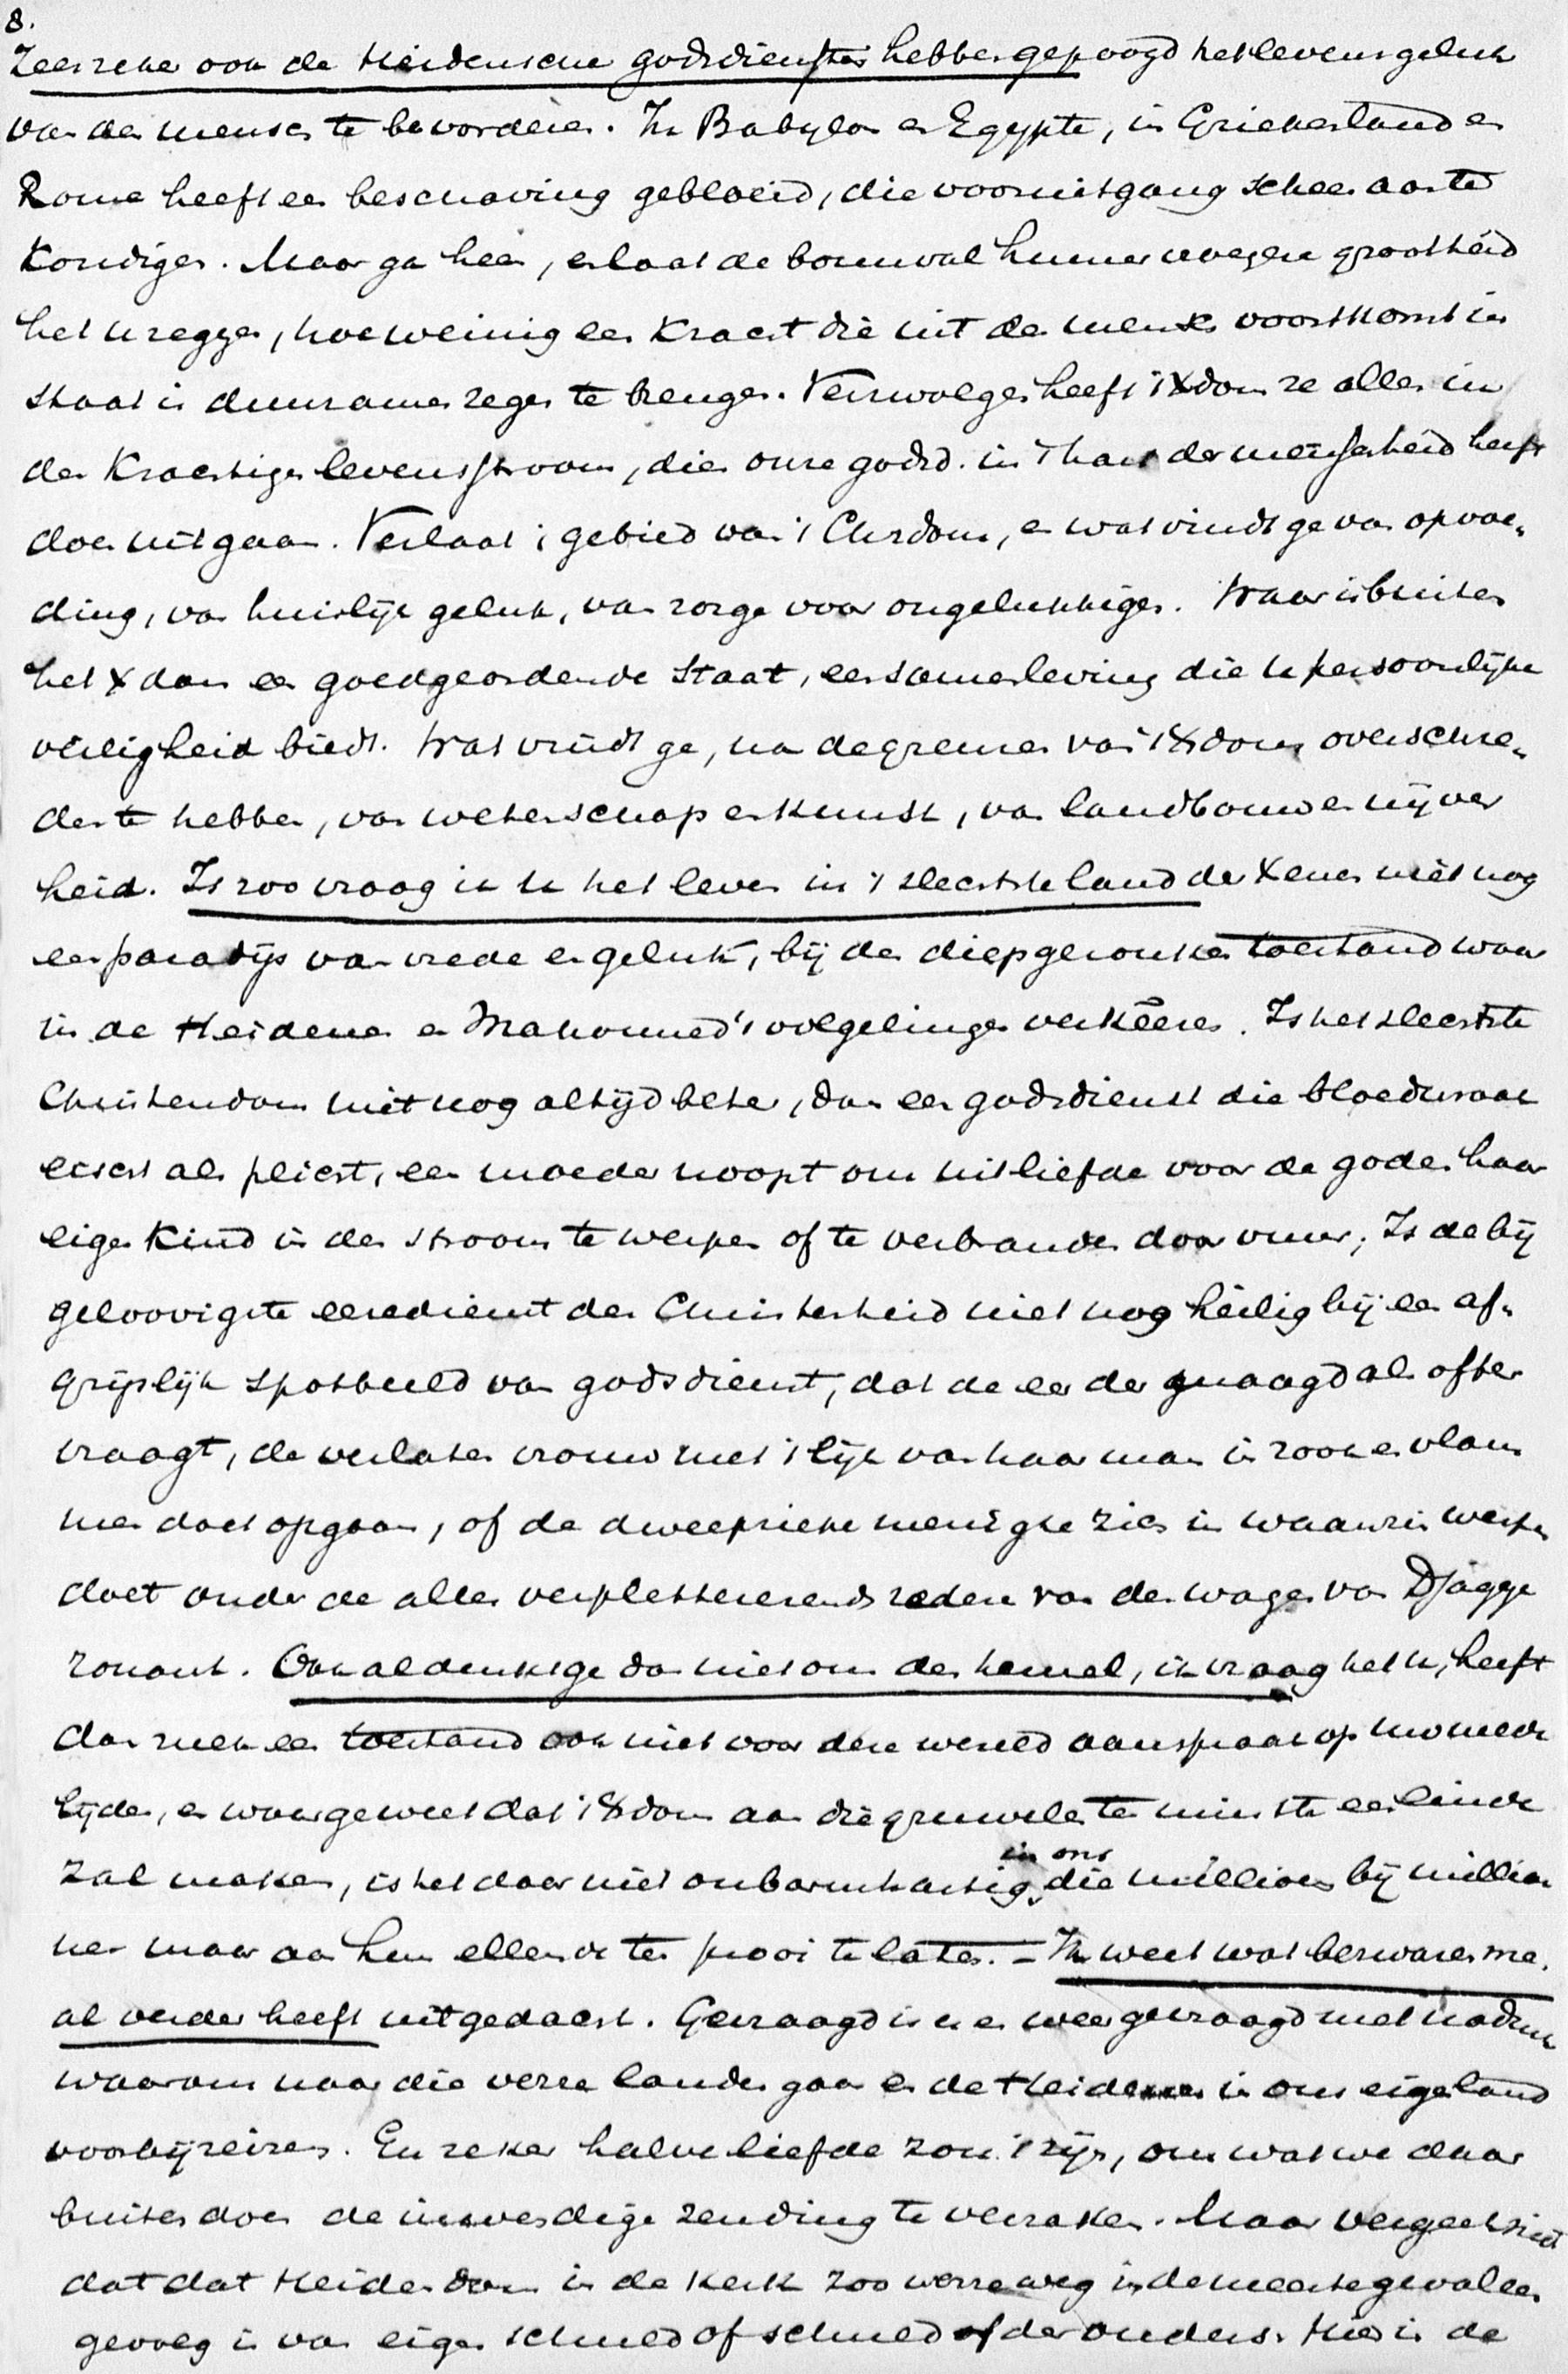 8.
Zeer zeker ook de Heidensche godsdiensten hebben gepoogd het levensgeluk
van den mensch te bevorderen. In Babylon en Egypte, in Griekenland en
Rome heeft een beschaving gebloeid, die vooruitgang scheen aan te
kondigen. Maar ga heen, en laat de bouwval hunner vroegere grootheid
het u zeggen, hoe weinig een kracht die uit den mensch voortkomt in
staat is duurzamen zegen te brengen. Verzwolgen heeft 't Xdom ze allen in
den krachtigen levensstroom, dien onze godsd. in 't hart der menschheid heeft
doen uitgaan. Verlaat 't gebied van 't Chrdom, en wat vindt ge van opvoe-
ding, van huislijk geluk, van zorge voor ongelukkigen. Waar is buiten
het Xdom een goedgeordende Staat, een samenleving die u persoonlijke
veiligheid biedt. Wat vindt ge, na de grenzen van 't Xdom overschre-
den te hebben, van wetenschap en kunst, van landbouw en nijver
heid. Is zoo vraag ik u het leven in 't slechtste land der Xenen niet nog
een paradijs van vrede en geluk, bij den diepgezonken toestand waar
in de Heidenen en Mahomed's volgelingen verkeeren. Is het slechtste
Christendom niet nog altijd beter, dan een godsdienst die bloedwraak
eischt als plicht, een moeder noopt om uit liefde voor de goden haar
eigen kind in den stroom te werpen of te verbranden door vuur; Is de bij
geloovigste eeredienst der Christenheid niet nog heilig bij een af-
grijslijk spotbeeld van godsdienst, dat de eer der maagd als offer
vraagt, de verlaten vrouw met 't lijk van haar man in rook en vlam
men doet opgaan, of de dweepzieke menigte zich in waanzin werpen
doet onder de alles verpletterende raderen van den wagen van Djagge
ronaut. Ook al denkt ge dan niet om den hemel, ik vraag het u, heeft
dan zulk een toestand ook niet voor deze wereld aanspraak op uw mede
lijden, en waar ge weet dat 't Xdom aan die gruwelen ten minste een einde
zal maken, is het dan niet onbarmhartig in ons, die millioen bij millioe
nen maar aan hun ellende ten prooi te laten. – Ik weet wat berwaren men
al verder heeft uitgedacht. Gevraagd is en weer gevraagd met nadruk
waarom naar die verre landen gaan en de Heidenen in ons eigen land
voorbijreizen. En zeker halve liefde zou 't zijn, om wat we daar
buiten doen de inwendige zending te verzaken. Maar vergeet niet
dat dat Heidendom in de kerk zoo verreweg in de meeste gevallen
gevolg is van eigen schuld of schuld der ouders. Hier is de